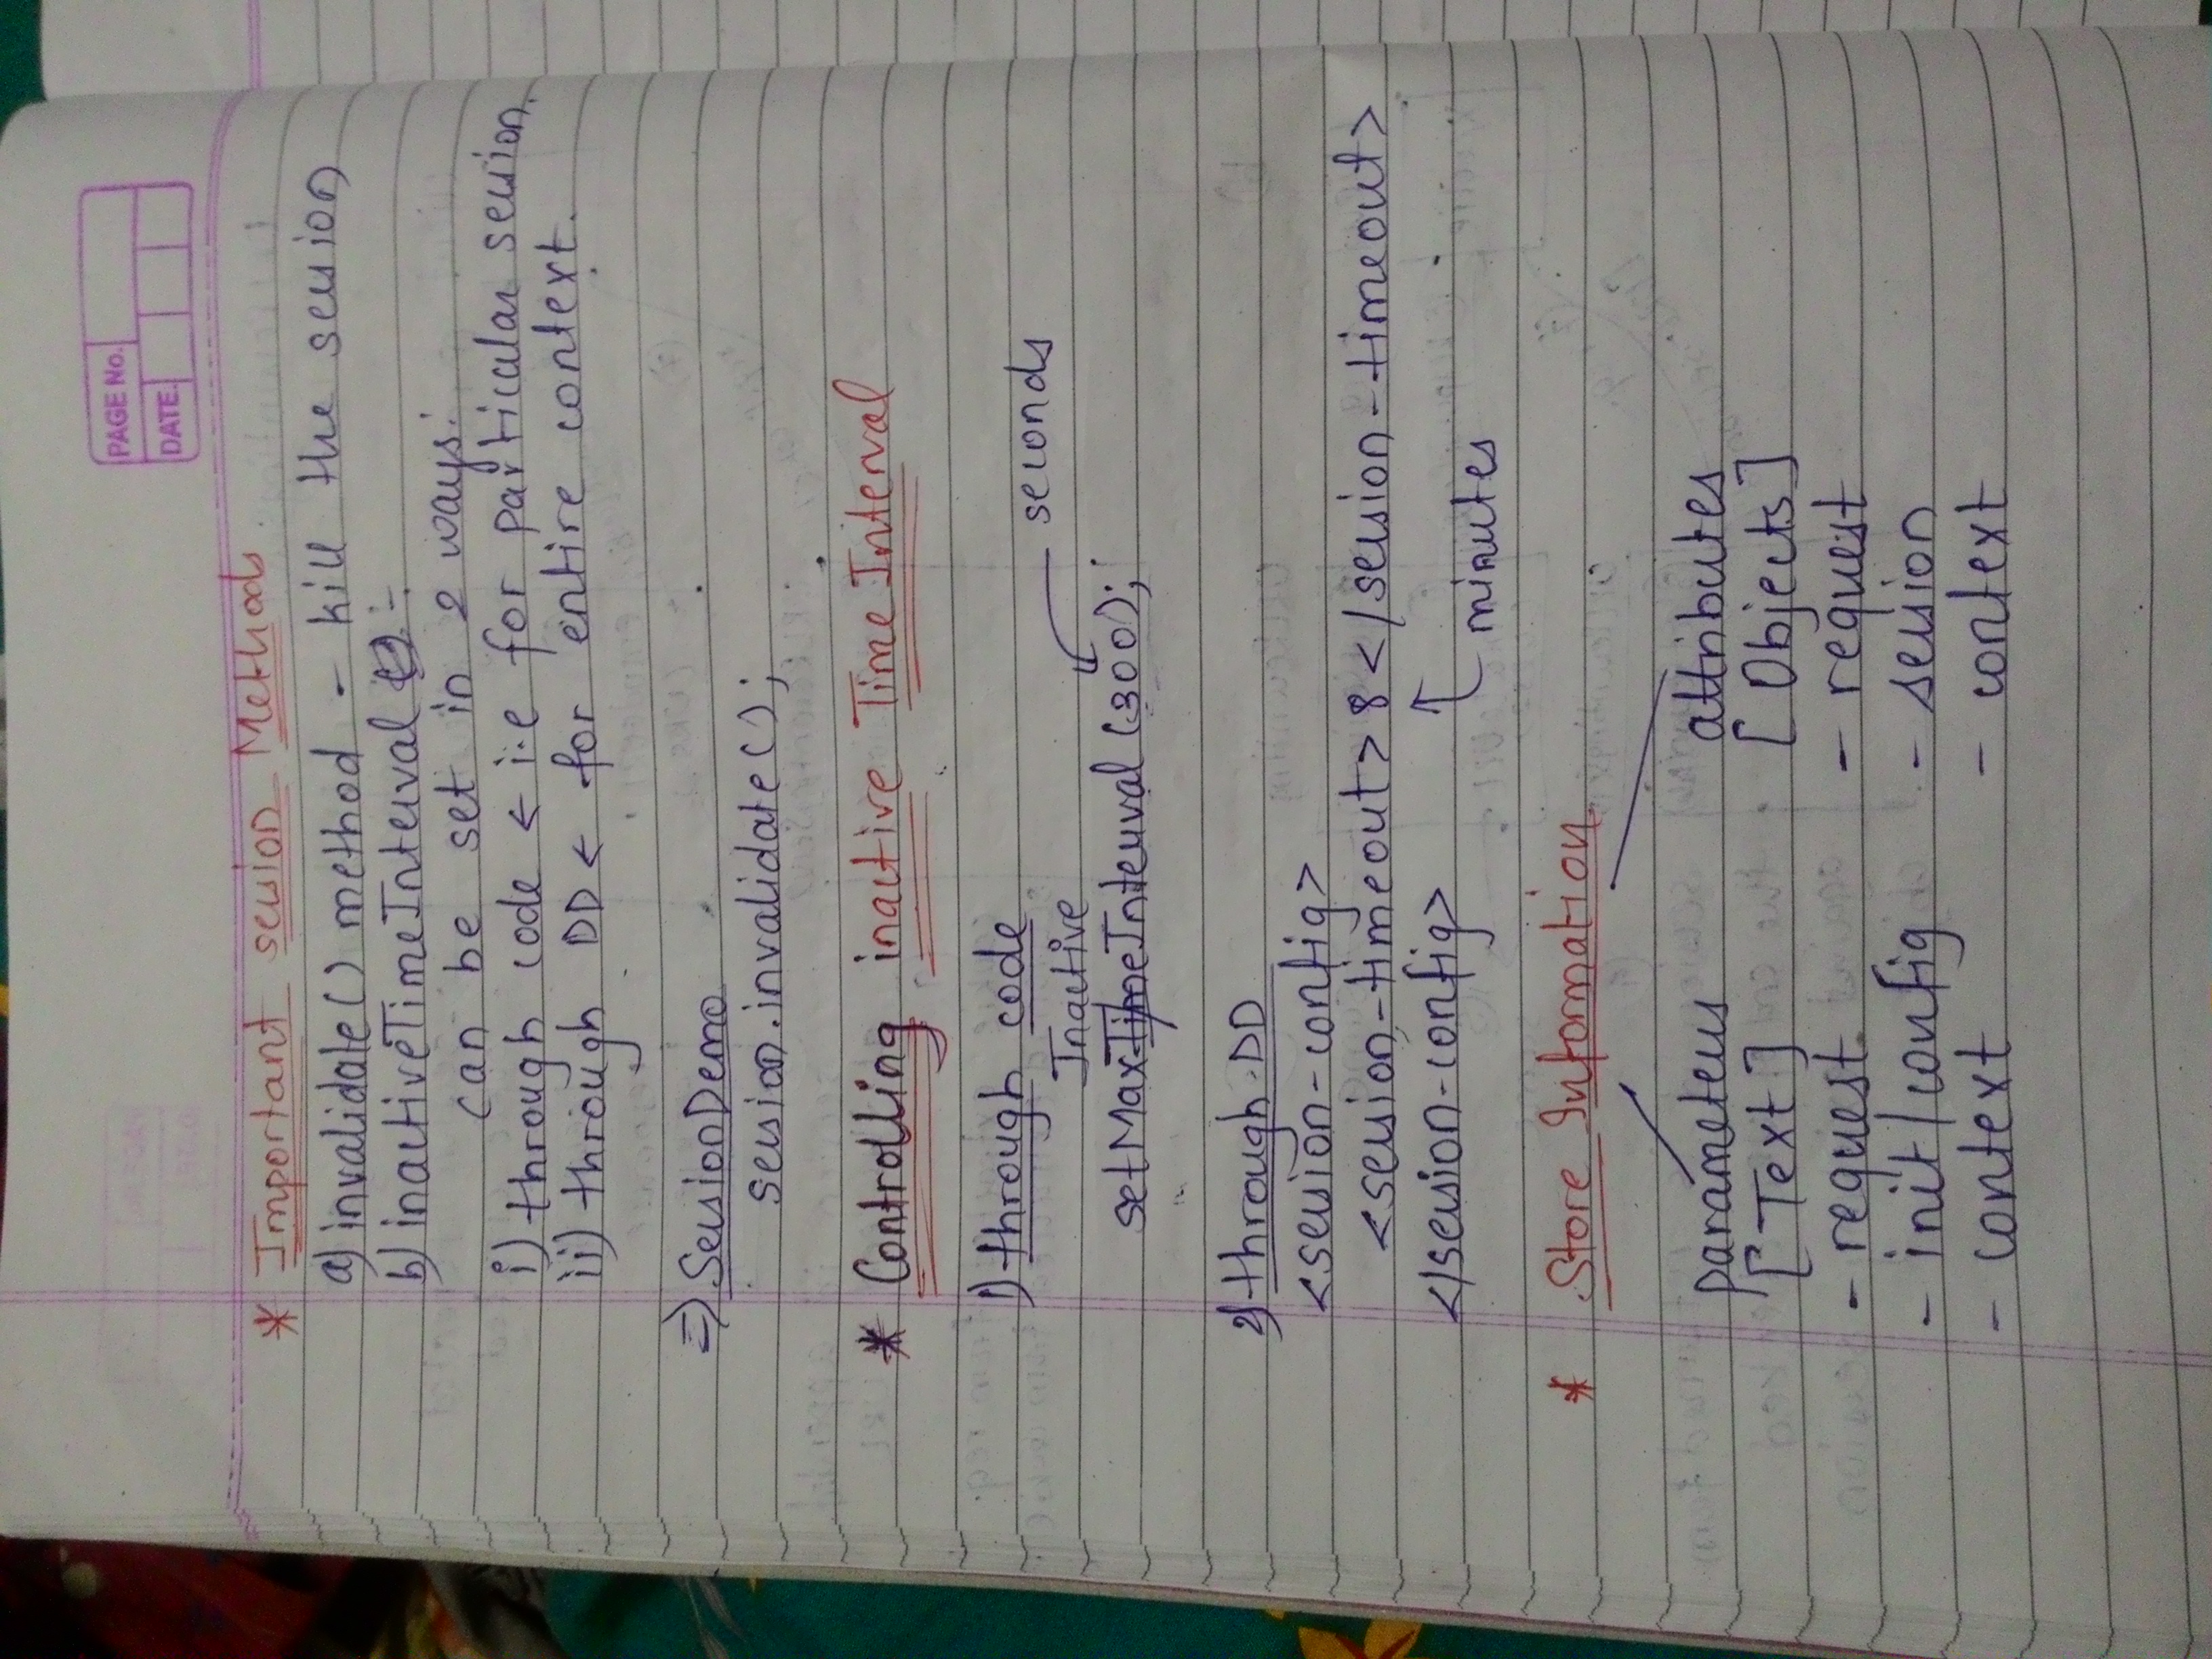 PAGE No.
DATE.
* Important session Methods
a) invalidate() method - kill the session
b) inactiveTimeInterval :-
can be set in 2 ways:
i) through code ← i.e for particular session.
ii) through DD ← for entire context.
⇒ SessionDemo
session.invalidate();
* Controlling inactive Time Interval
1) through code
seconds
Inactive
setMaxTimeInterval (300);
2) through DD
<session-config>
<session-timeout> 8 </session-timeout>
</session-config>
minutes
* Store Information
parameters attributes
[Text] [Objects]
- request - request
- init/config - session
- context - context